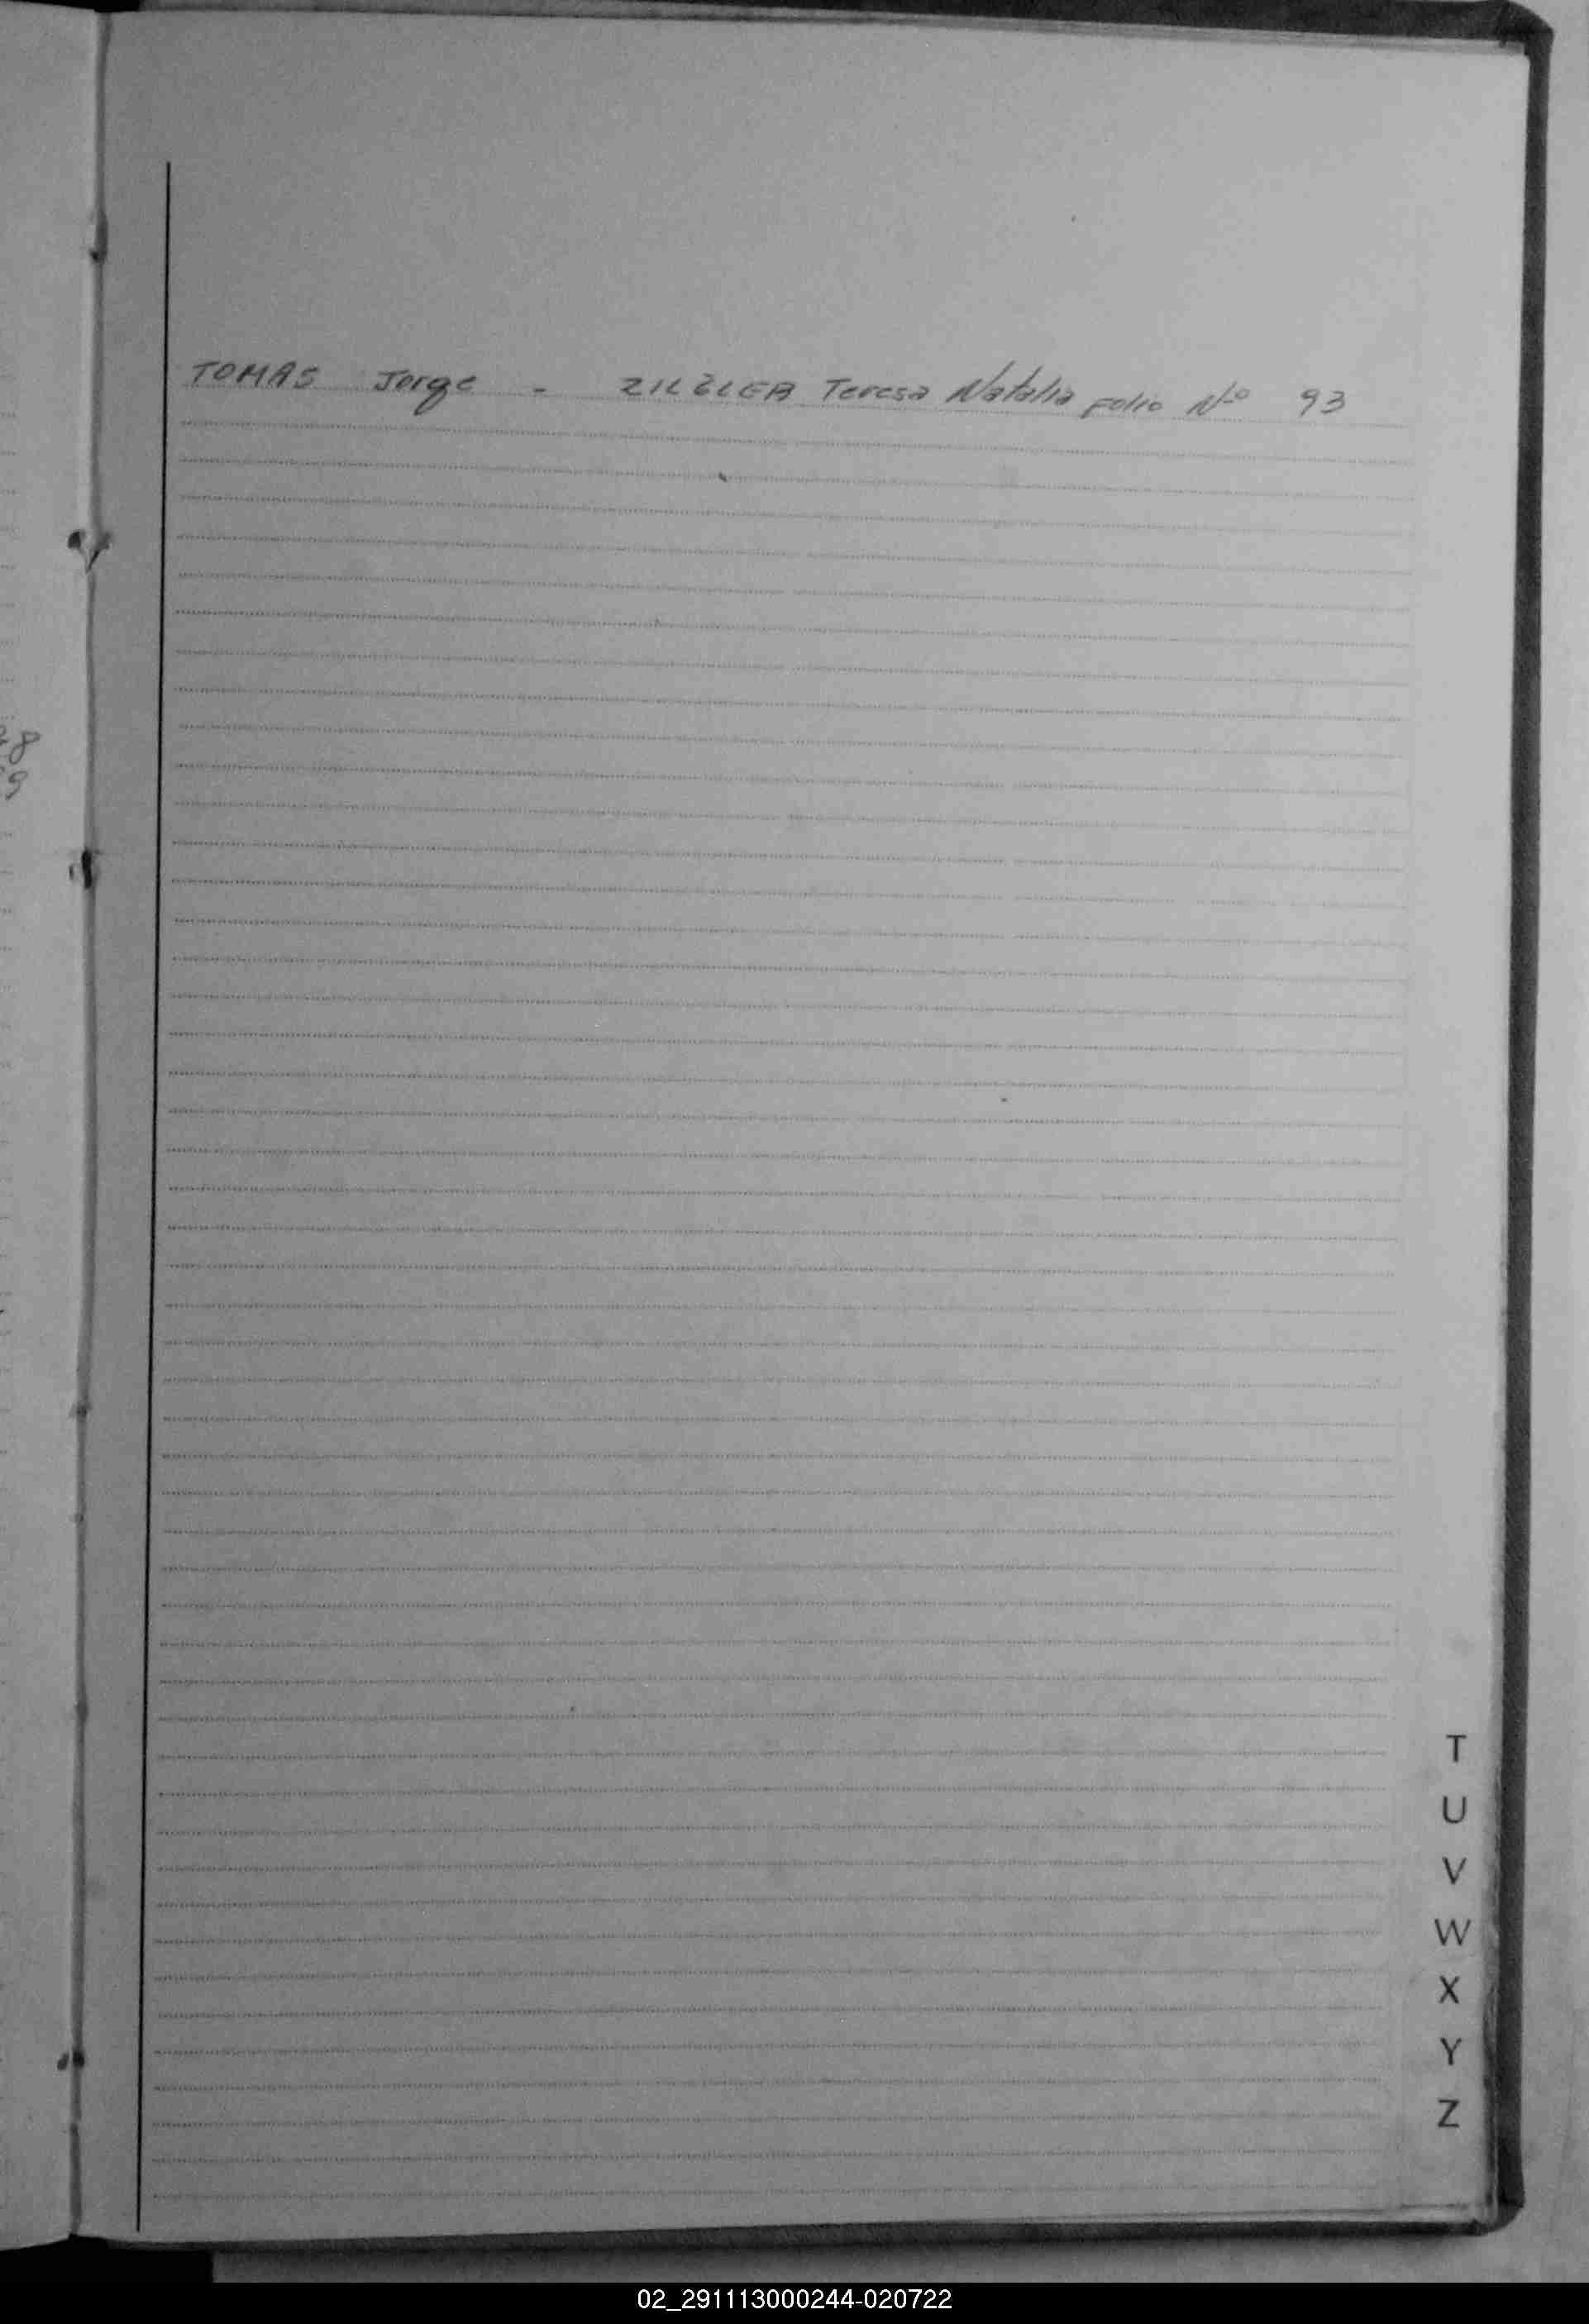 TOMAS Jorge - Teresa Natalia Folio Nº 93
8
9
T
U
V
W
X
Y
Z
02_291113000244-020722